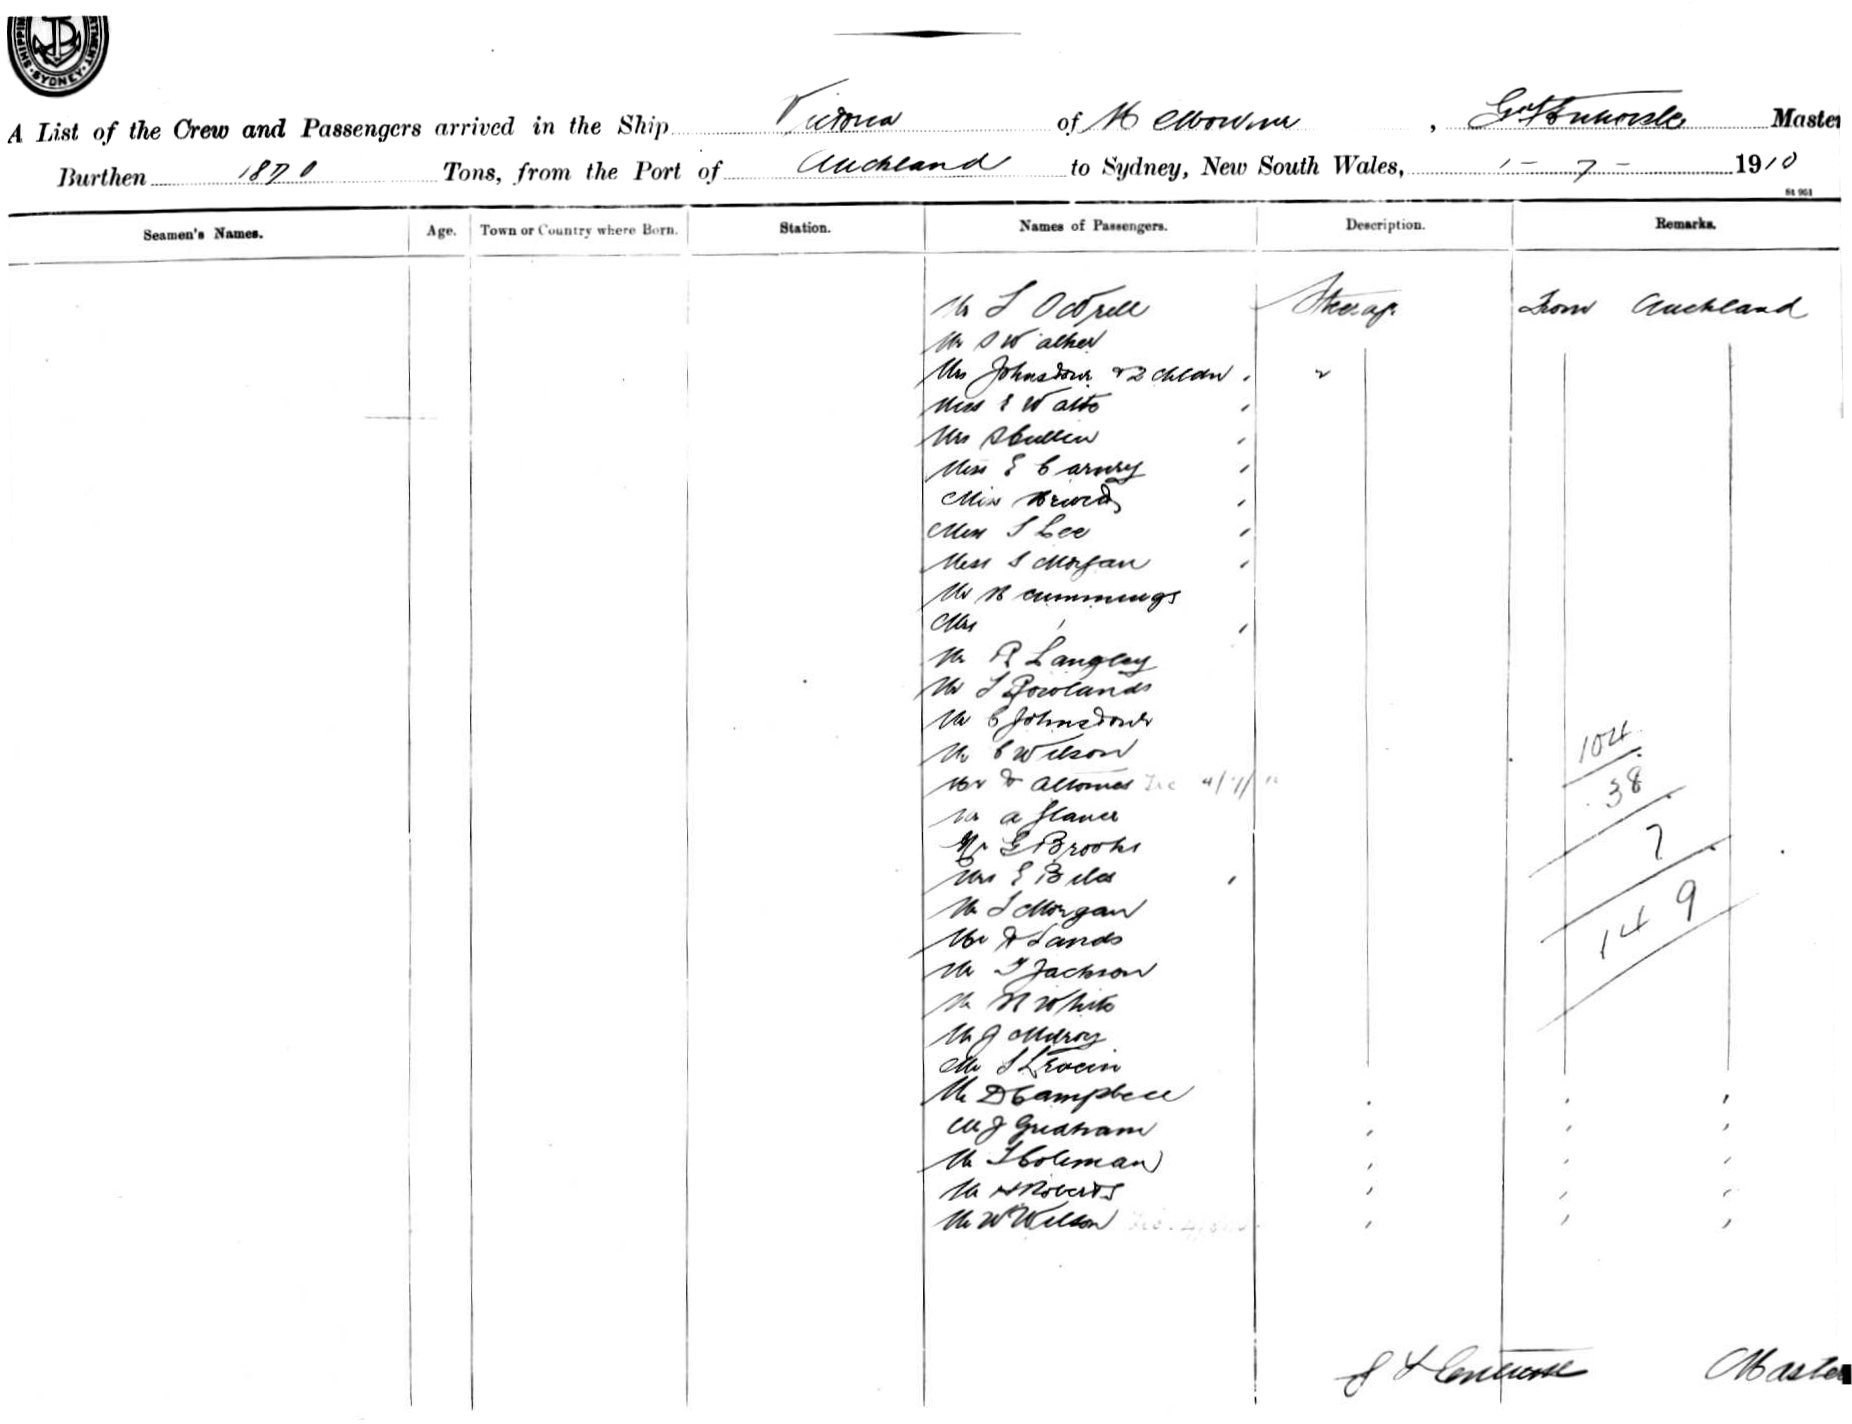 SHIPPING SYDNEY
A List of the Crew and Passengers arrived in the Ship Victoria of Melbourne, Master
Burthen 1870 Tons, from the Port of Auckland to Sydney, New South Wales, 1 - 7 - 1910
St 951
Seamen's Names. Age. Town or Country where Born. Station. Names of Passengers. Description. Remarks.
Mr Steerage From Auckland
Mr S Walker
Mrs Johnstone & 2 childn
Miss E Watts
Mrs S Cullen
Miss E Carney
Miss
Miss S Lee
Miss S Morgan
Mr H Cummings
Mrs
Mr R Langley
Mr T Rowlands
Mr C Johnstone
Mr C Wilson
104
Mr
38
Mr A
7
Mr G Brooks
Mrs E
149
Mr T Morgan
Mr Sands
Mr T Jackson
Mr H White
Mr J Milroy
Mr
Mr D Campbell
Mr J
Mr T Coleman
Mr H Roberts
Mr W Wilson
Master